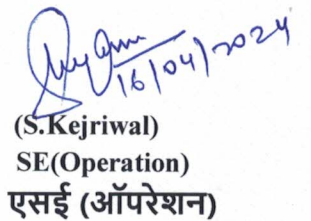 16/04/2024
(S.Kejriwal)
SE(Operation)
एसई (ऑपरेशन)